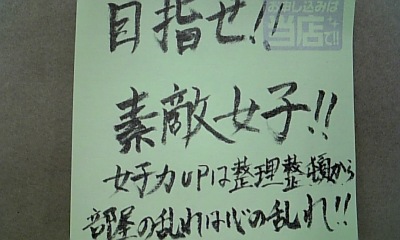 目指せ!!
お申し込みは
当店で!!
素敵女子!!
女子力UPは整理整頓から
部屋の乱れは心の乱れ!!